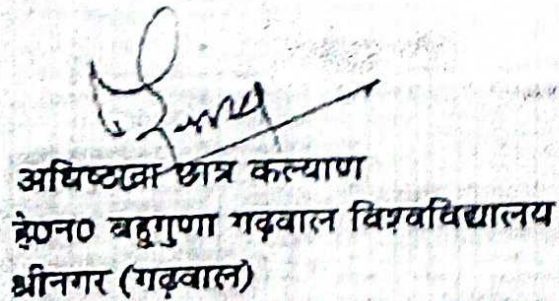 अधिष्ठाता छात्र कल्याण
हे0न0 बहुगुणा गढ़वाल विश्वविद्यालय
श्रीनगर (गढ़वाल)